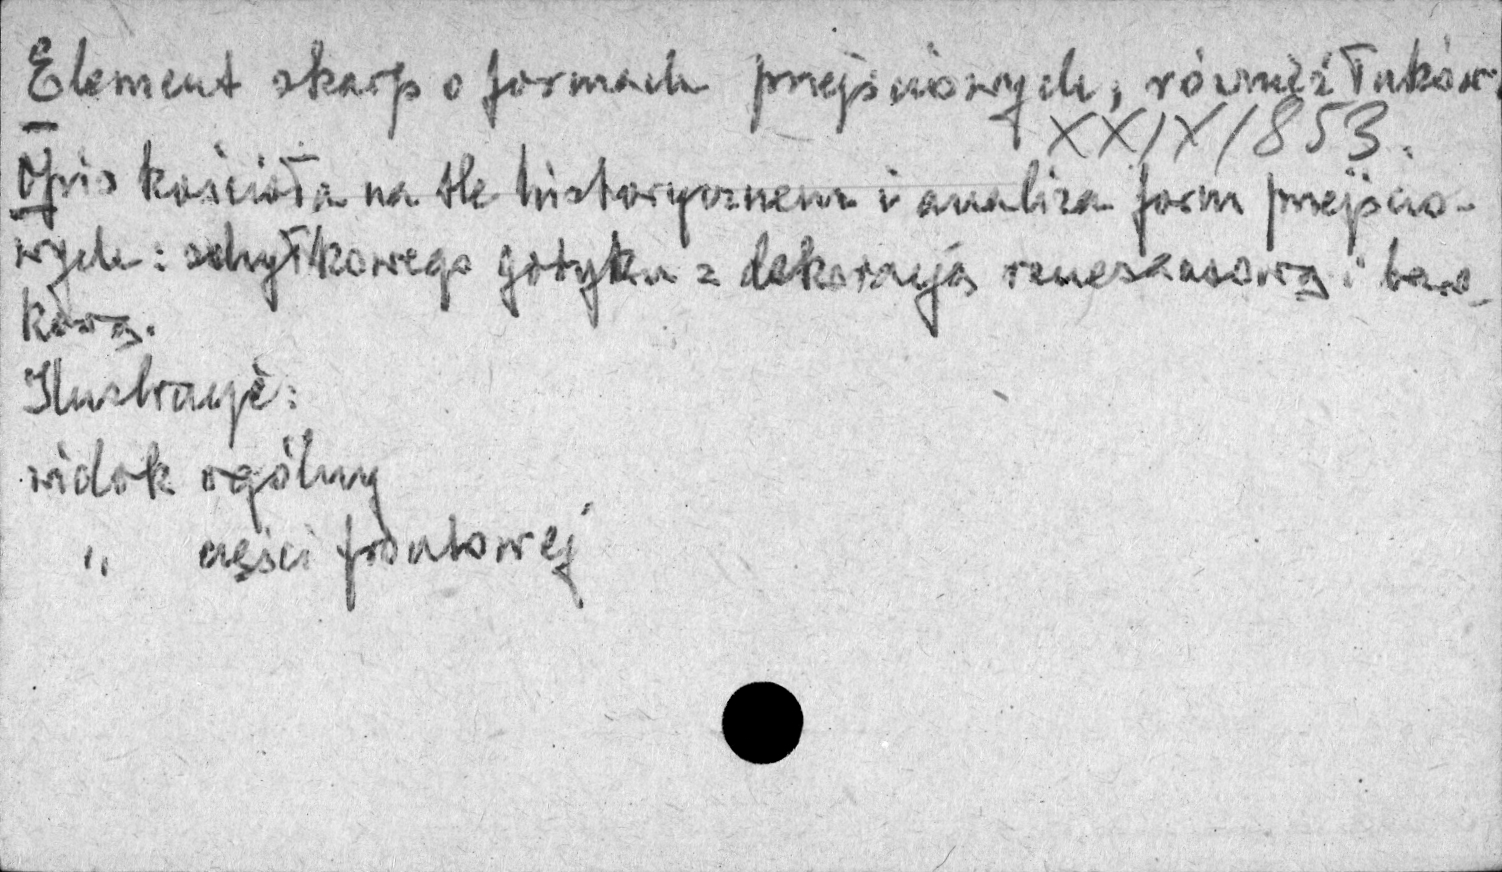 Element skarp o formach przejściowych, również łuków.
XXIX/853.
Opis kościoła na tle historycznem i analiza form przejścio-
wych: schyłkowego gotyku z dekoracją renesansową i baro-
kową.
Ilustracje:
widok ogólny
" części frontowej